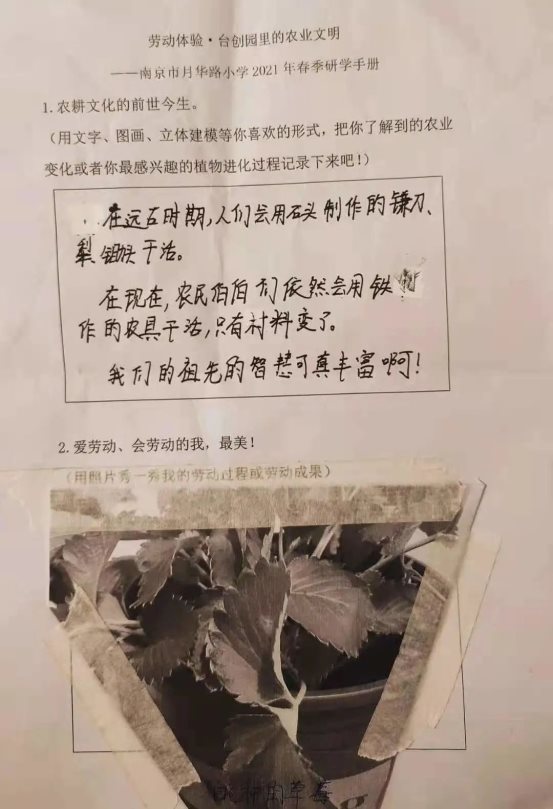 劳动体验·台创园里的农业文明
——南京市月华路小学2021年春季研学手册
1.农耕文化的前世今生。
(用文字、图画、立体建模等你喜欢的形式，把你了解到的农业
变化或者你最感兴趣的植物进化过程记录下来吧!)
在远古时期,人们会用石头制作的镰刀、
犁、锄头干活。
在现在,农民伯伯们依然会用铁制
作的农具干活,只有材料变了。
我们的祖先的智慧可真丰富啊!
2.爱劳动、会劳动的我，最美!
(用照片秀一秀我的劳动过程或劳动成果)
种的草莓